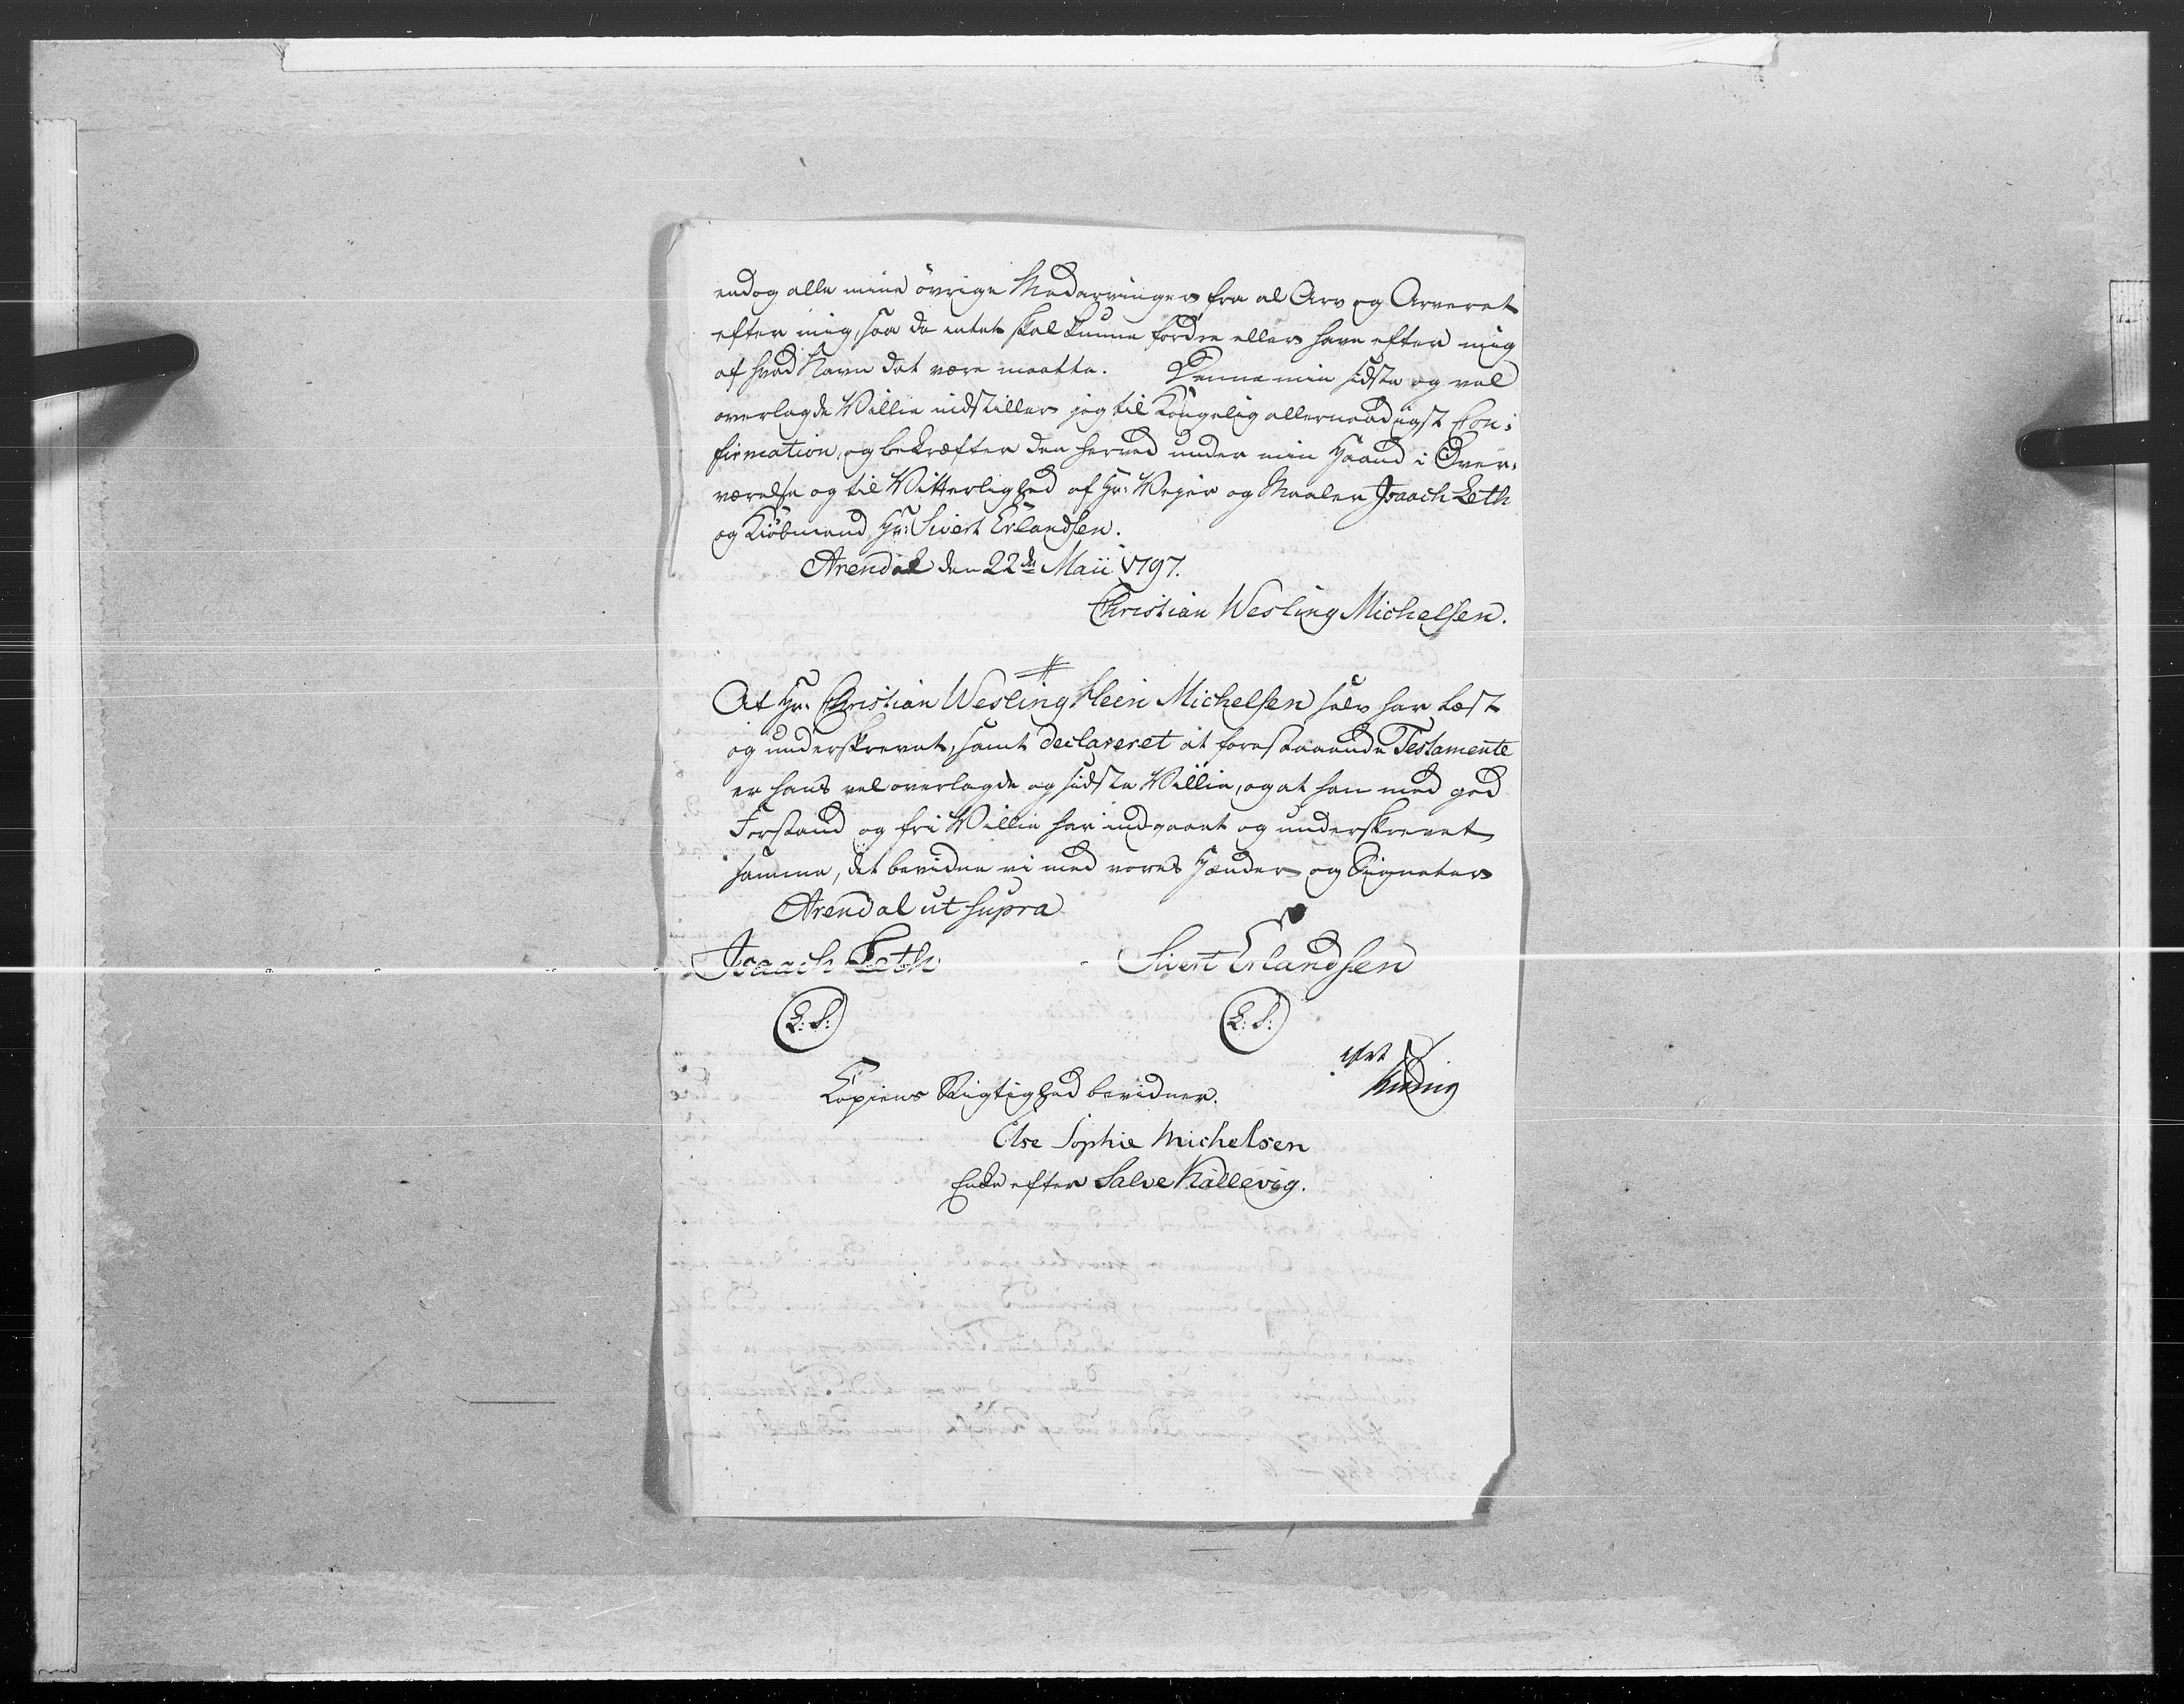 endog alle mine øvrige Medarvinger fra al Arv og Arveret
efter mig, saa de intet skal kunne fordre eller have efter mig
af hvad Navn det være maatte. Denne min sidste og vel
overlagde Villie indstiller jeg til Kongelig allernaadigst Con:
firmation, og bekræfter den herved under min Haand i Over:
værelse og til Vitterlighed af Hr: Vejer og Maaler Isaach Leth
og Kiøbmand Hr: Sivert Erlandsen.
Arendal den 22de Maii 1797.
Christian Wesling Michelsen.
At Hr: Christian Wesling Klein Michelsen selv har læst
og underskrevet, samt declareret at forestaaende Testamente
er hans vel overlagde og sidste Villie, og at han med god
Forstand og fri Villie har indgaaet og underskrevet
samme, det bevidne vi med vores Hænder og Signeter
Arendal ut supra
Isaach Leth Sivert Erlandsen
L: S: L: S:
Copiens Rigtighed bevidner.
Else Sophie Michelsen
Enke efter Salve Kallevig.